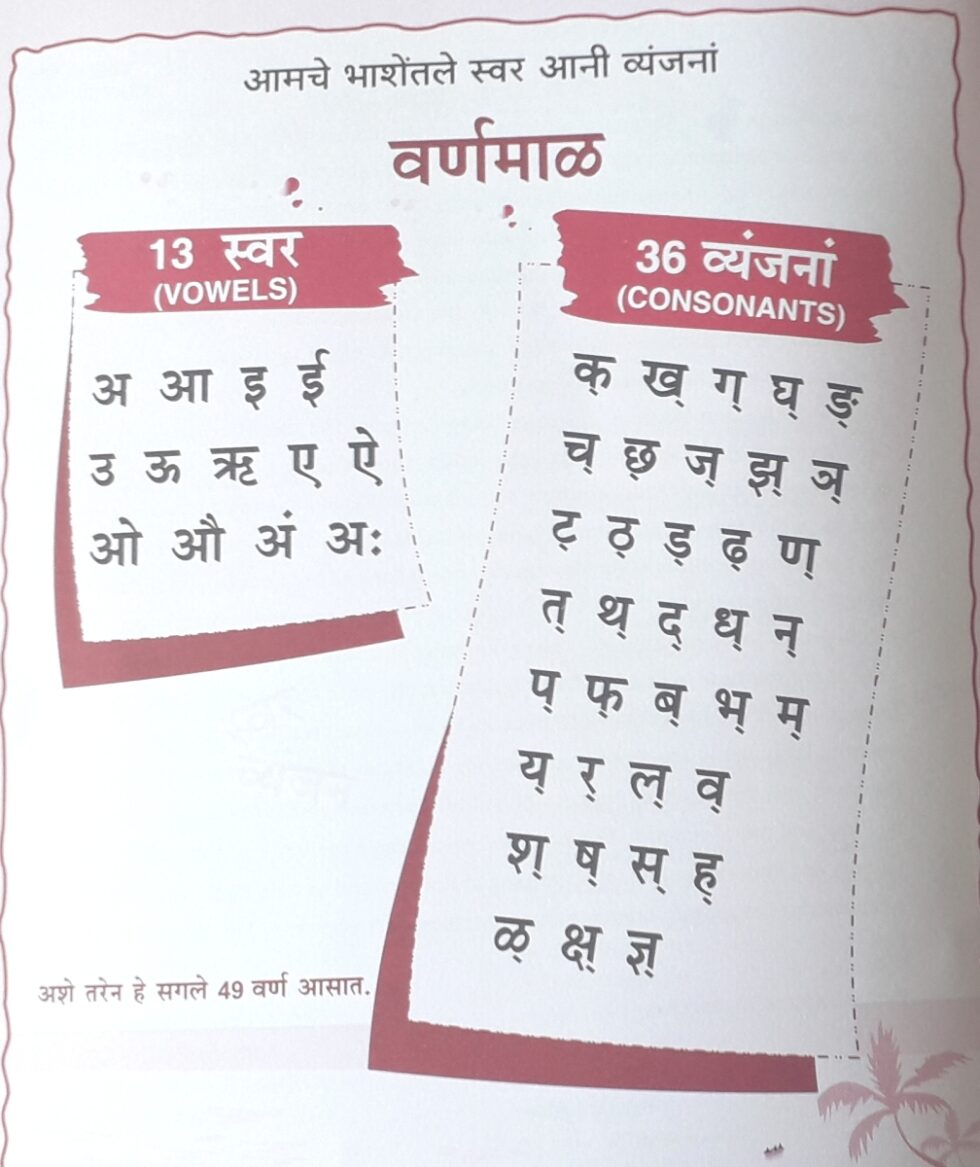 आमचे भाशेंतले स्वर आनी व्यंजनां
वर्णमाळ
13 स्वर
(VOWELS)
अ आ इ ई
उ ऊ ऋ ए ऐ
ओ औ अं अः
36 व्यंजनां
(CONSONANTS)
क् ख् ग् घ् ङ्
च् छ् ज् झ् ञ्
ट् ठ् ड् ढ् ण्
त् थ् द् ध् न्
प् फ् ब् भ् म्
य् र् ल् व्
श् ष् स् ह्
ळ् क्ष् ज्ञ्
अशे तरेन हे सगले 49 वर्ण आसात.